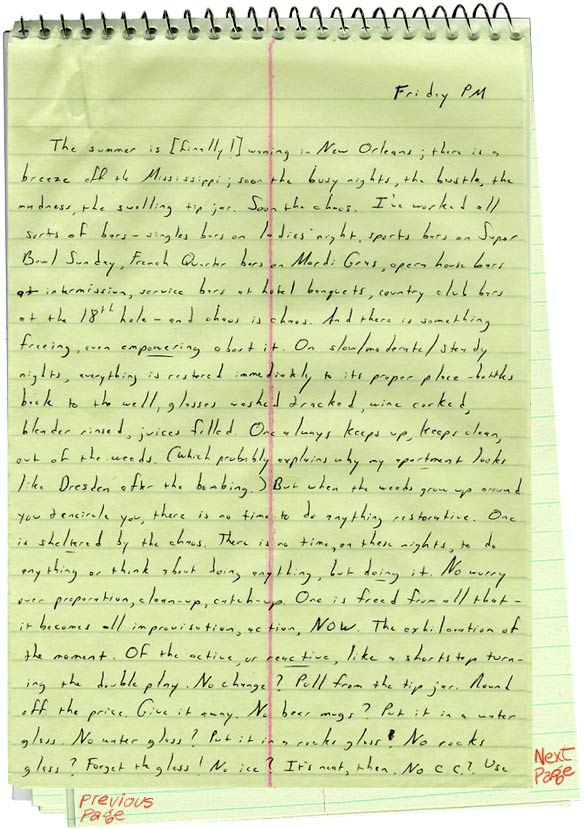 Friday PM
The summer is [finally!] waning in New Orleans; there is a
breeze off the Mississippi; soon the busy nights, the bustle, the
madness, the swelling tip jar. Soon the chaos. I've worked all
sorts of bars – singles bars on ladies' night, sports bars on Super
Bowl Sunday, French Quarter bars on Mardi Gras, opera house bars
at intermission, service bars at hotel banquets, country club bars
at the 18th hole – and chaos is chaos. And there is something
freeing, even empowering about it. On slow/moderate/steady
nights, everything is restored immediately to its proper place – bottles
back to the well, glasses washed & racked, wine corked,
blender rinsed, juices filled. One always keeps up, keeps clean,
out of the weeds. (Which probably explains why my apartment looks
like Dresden after the bombing.) But when the weeds grow up around
you & encircle you, there is no time to do anything restorative. One
is sheltered by the chaos. There is no time, on these nights, to do
anything or think about doing anything, but doing it. No worry
over preparation, clean-up, catch-up. One is freed from all that –
it becomes all improvisation, action, NOW. The exhilaration of
the moment. Of the active, or reactive, like a shortstop turn-
ing the double play. No change? Pull from the tip jar. Round
off the price. Give it away. No beer mugs? Put it in a water
glass. No water glass? Put it in a rocks glass! No rocks
glass? Forget the glass! No ice? It's neat, then. No C.C.? Use
Next
Page
Previous
Page